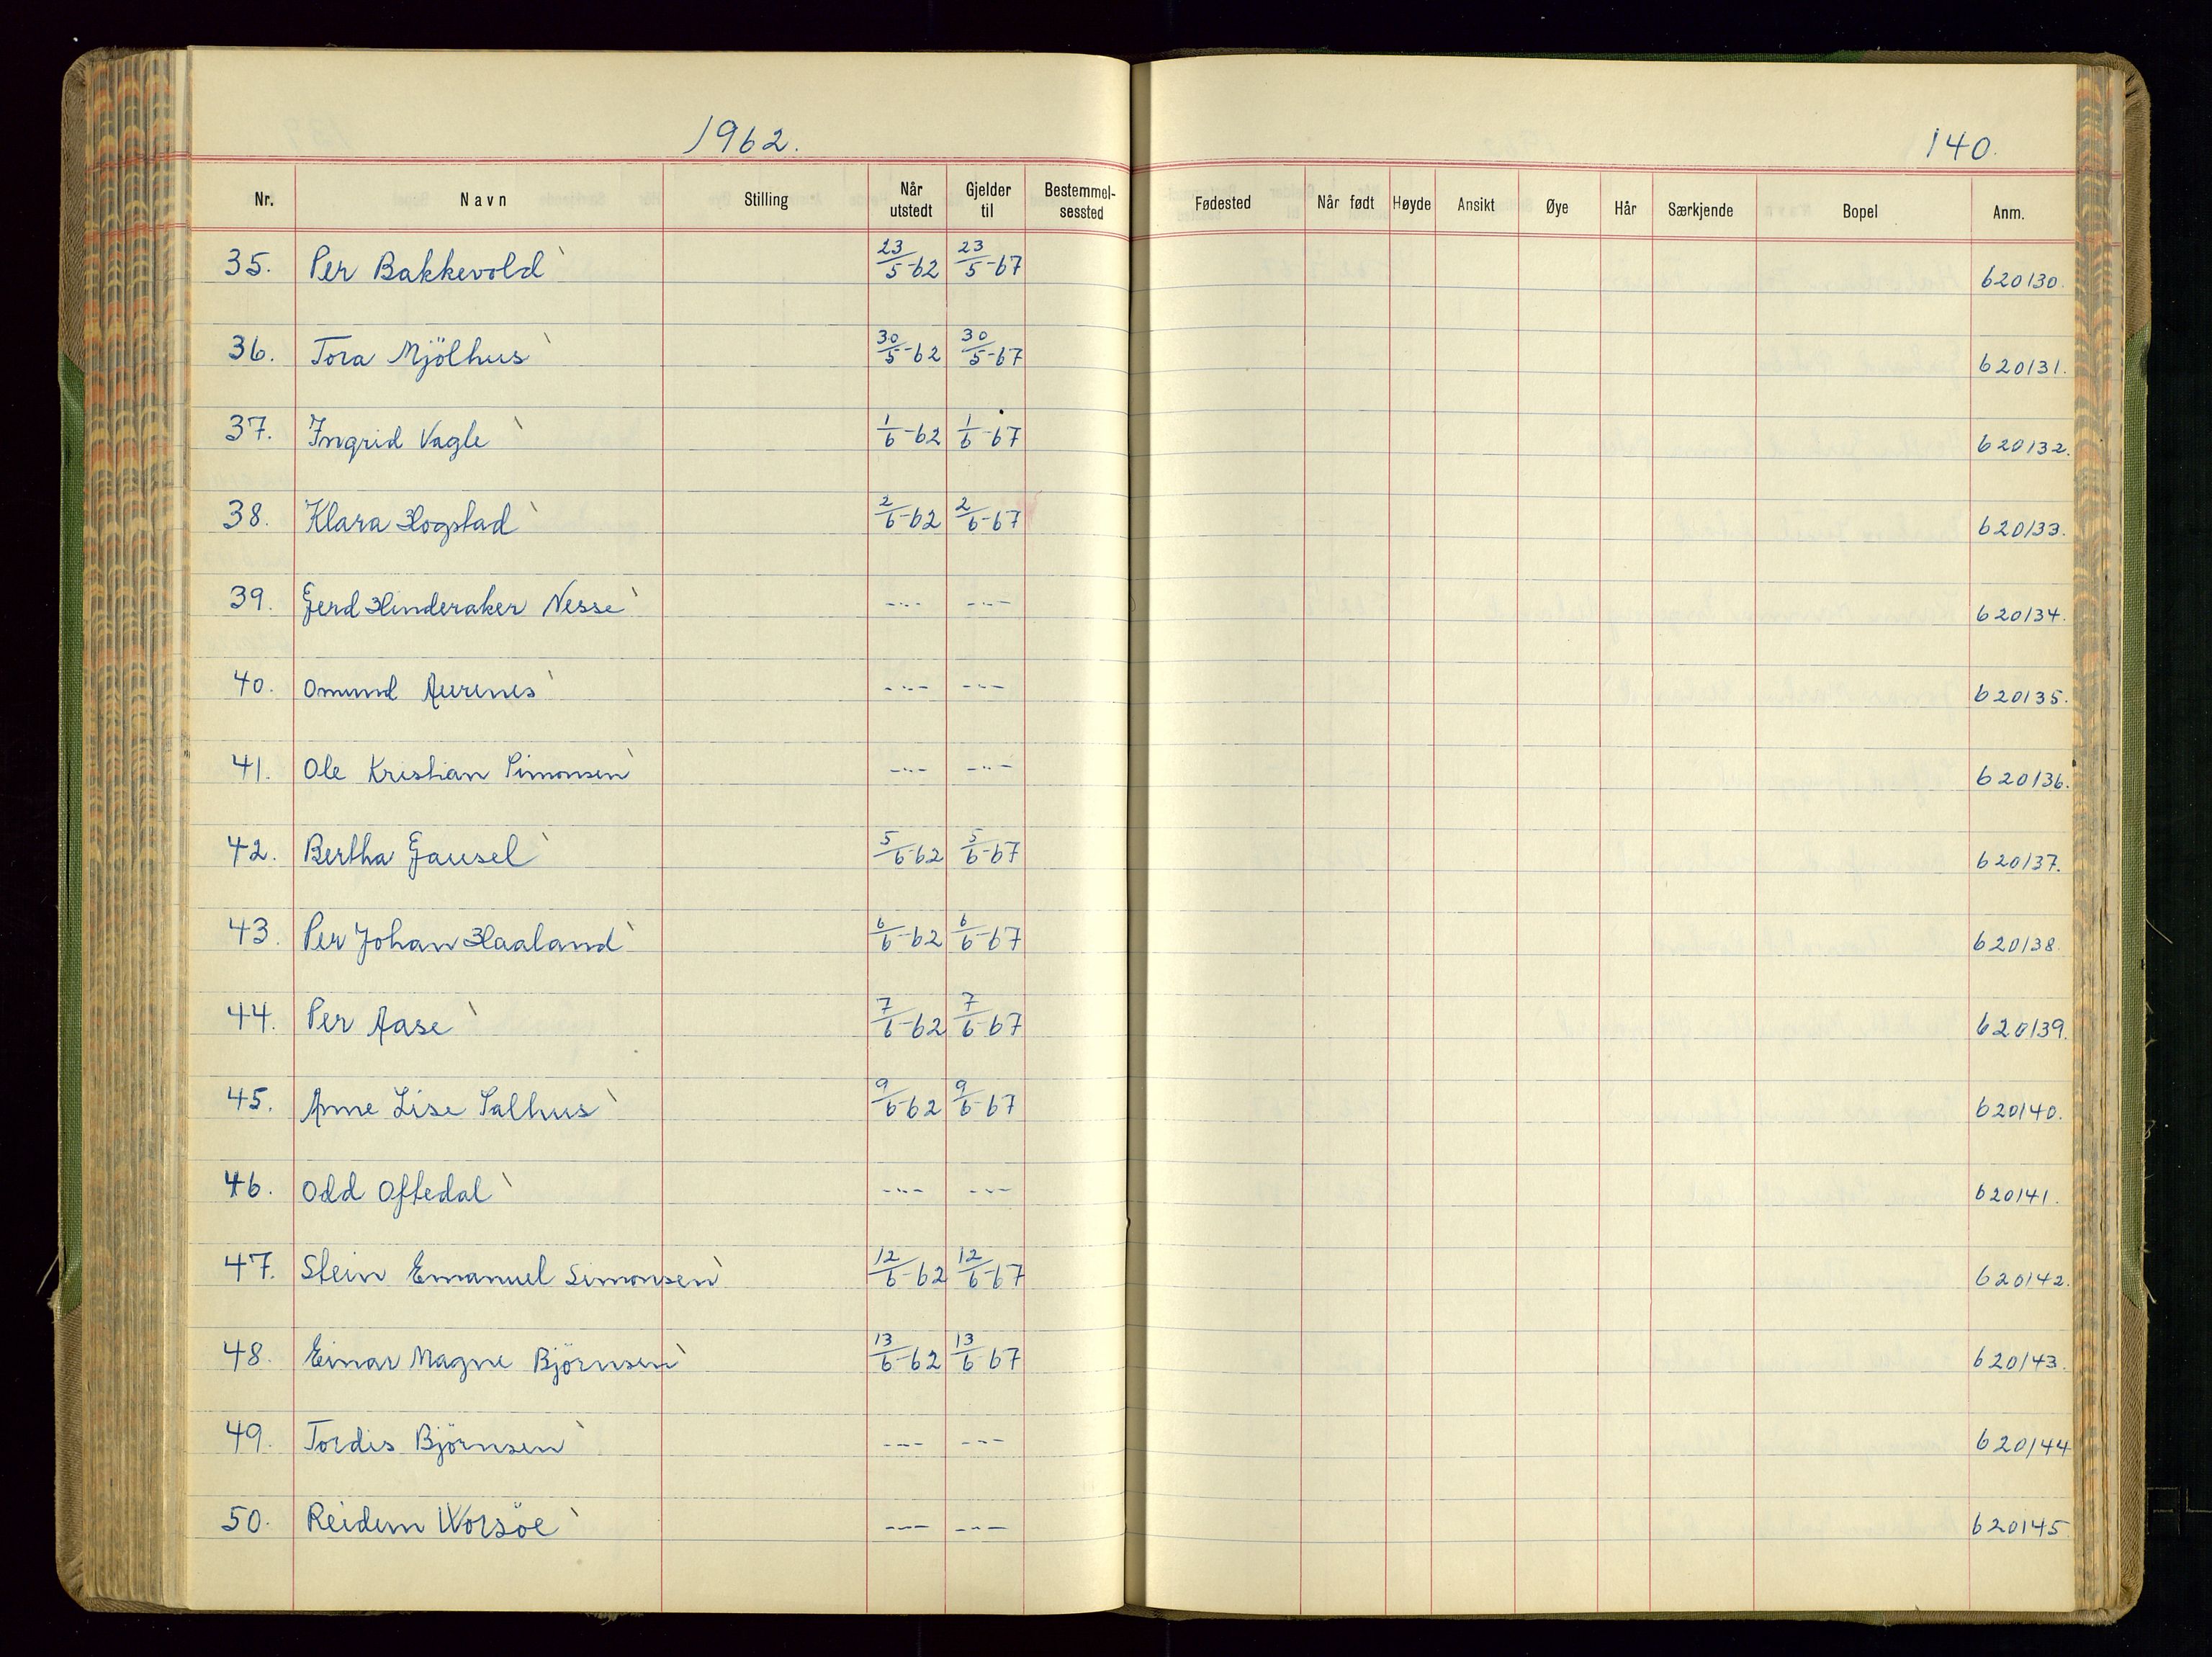 1962.
140.
Nr. Navn Stilling Når utstedt Gjelder til Bestemmel-sessted Fødested Når født Høyde Ansikt Øye Hår Særkjende Bopel Anm.
35. Per Bakkevold 23/5-62 23/5-67 620130.
36. Tora Mjölhus 30/5-62 30/5-67 620131.
37. Ingrid Vagle 1/6-62 1/6-67 620132.
38. Klara Hogstad 2/6-62 2/6-67 620133.
39. Gerd Hinderaker Nesse -"- -"- 620134.
40. Omund Aurenes -"- -"- 620135.
41. Ole Kristian Simonsen -"- -"- 620136.
42. Bertha Gausel 5/6-62 5/6-67 620137.
43. Per Johan Haaland 6/6-62 6/6-67 620138.
44. Per Aase 7/6-62 7/6-67 620139.
45. Anne Lise Salhus 9/6-62 9/6-67 620140.
46. Odd Oftedal -"- -"- 620141.
47. Stein Emanuel Simonsen 12/6-62 12/6-67 620142.
48. Einar Magne Björnsen 13/6-62 13/6-67 620143.
49. Tordis Björnsen -"- -"- 620144
50. Reidun Worsöe -"- -"- 620145